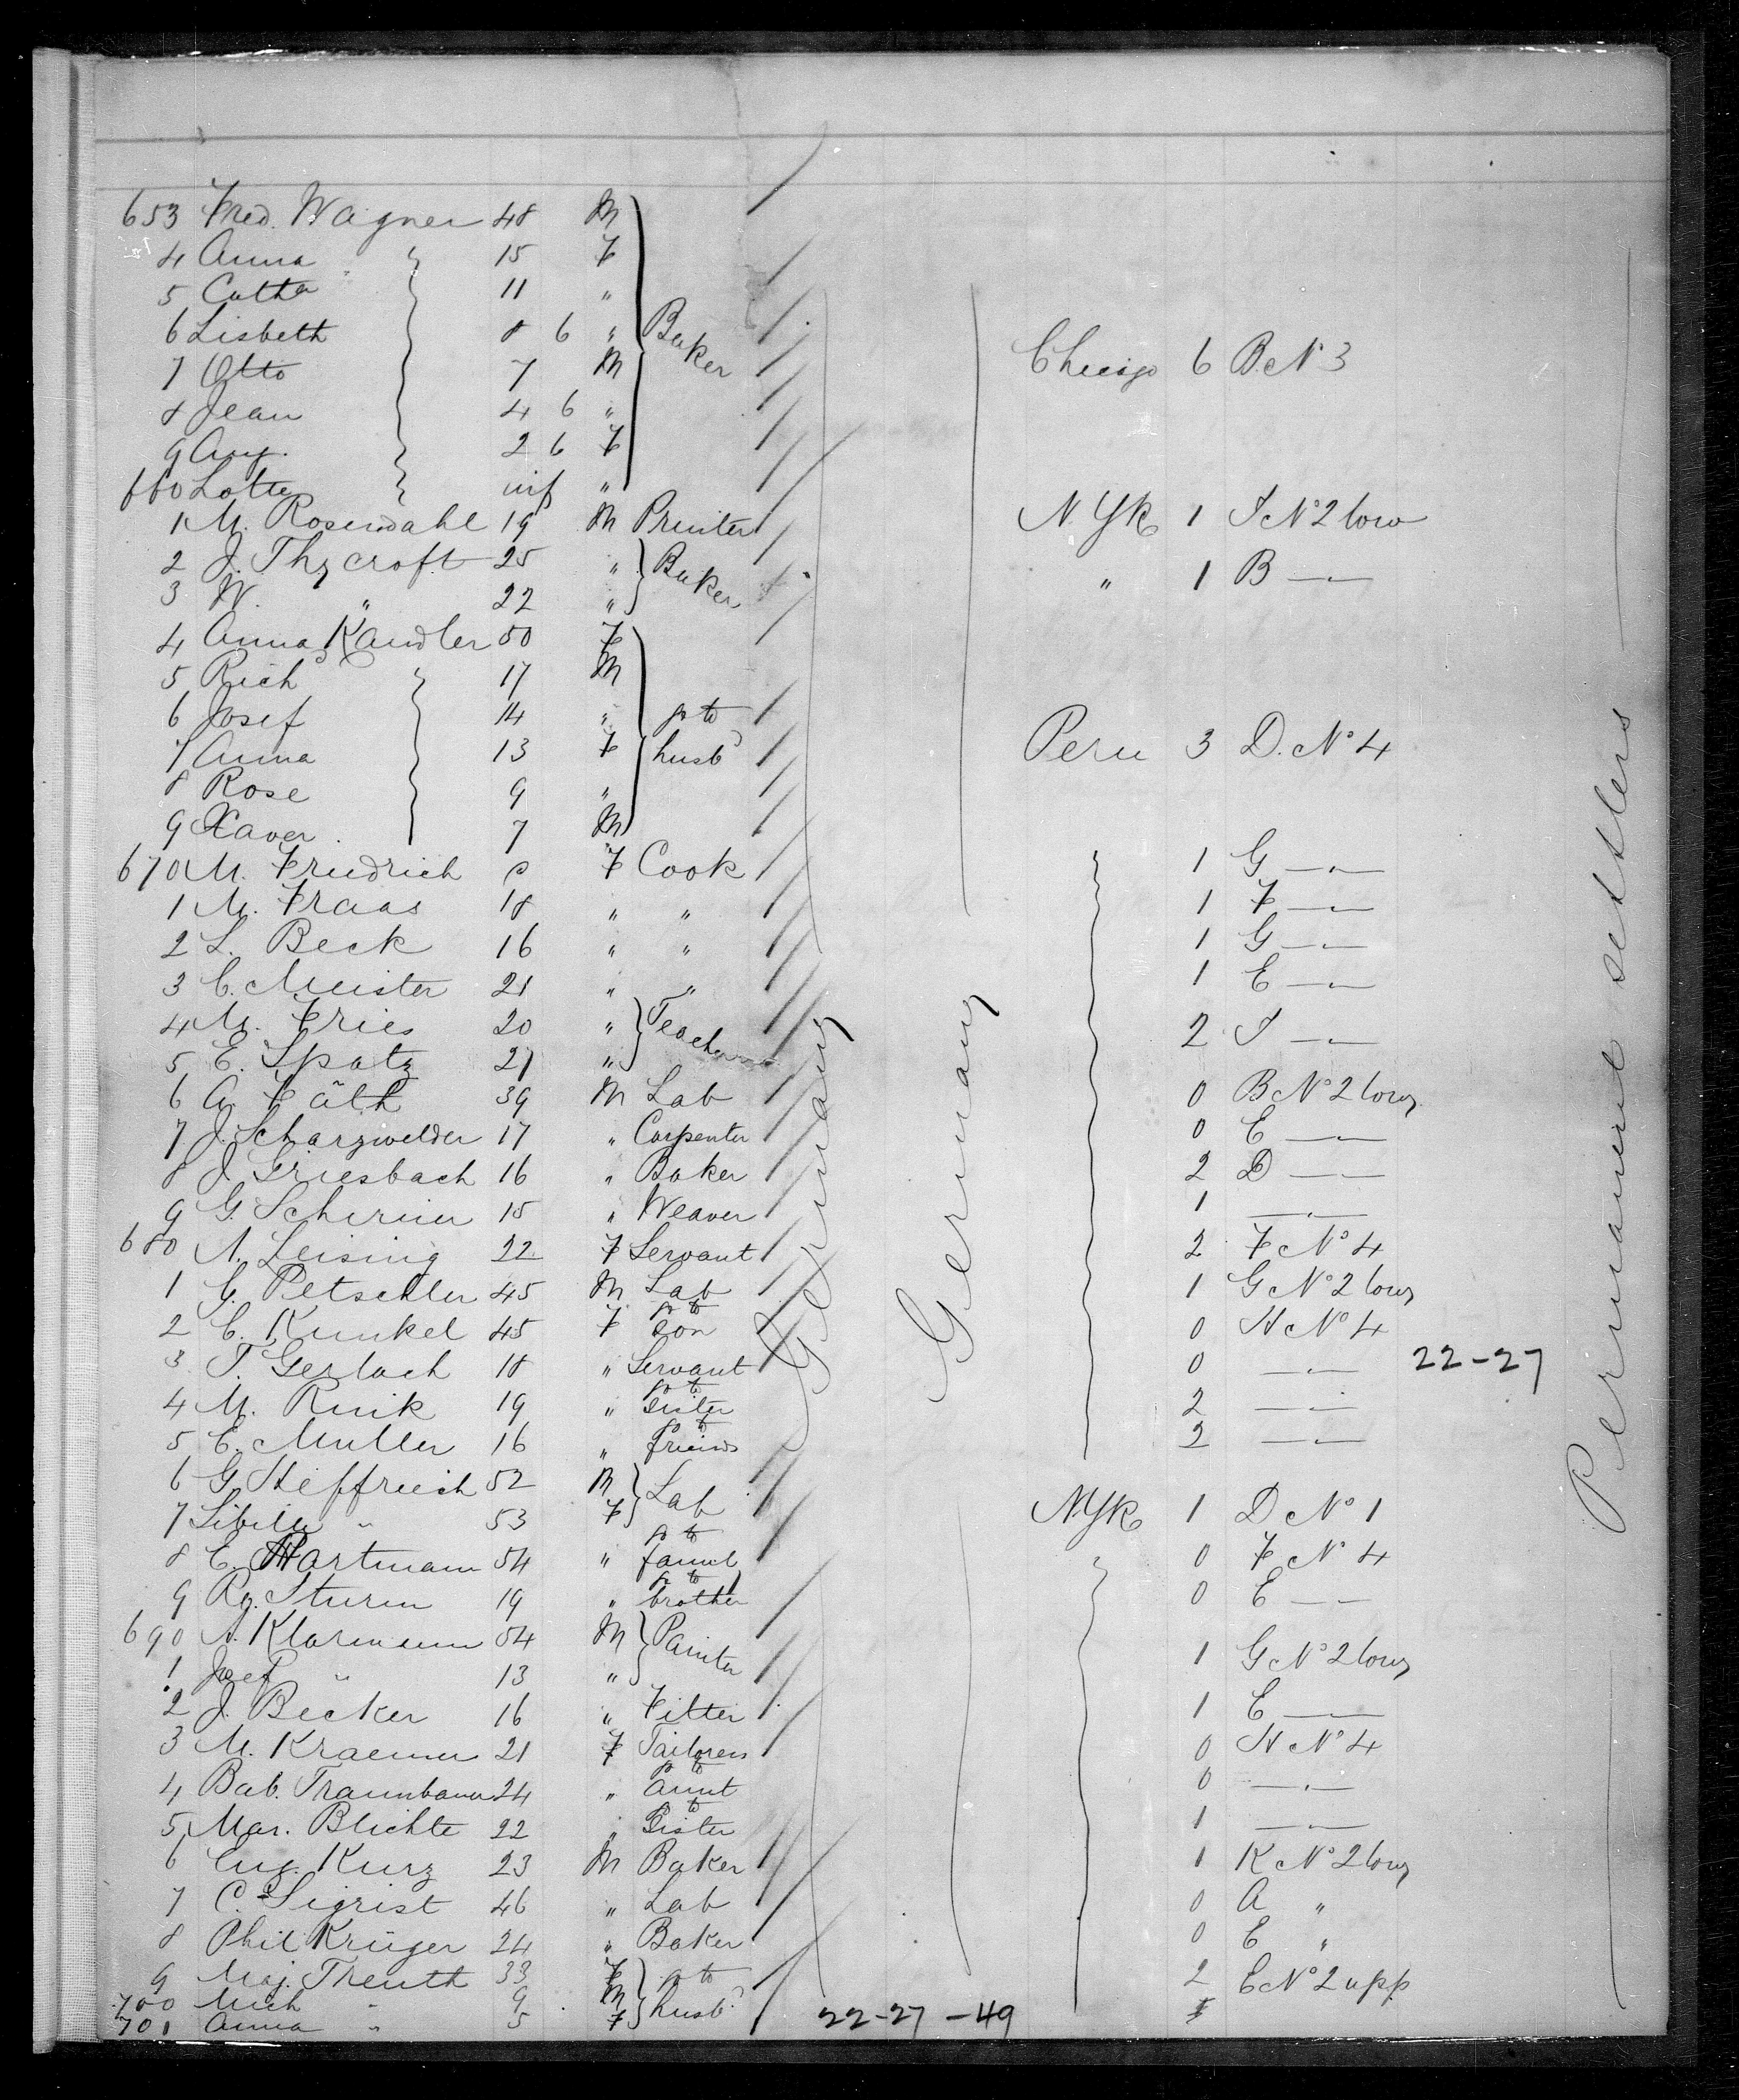 653 Fred. Wagner 48 M
4 Anna 15 F
5 Cath 11 "
6 Lisbeth 8 6 " Baker Chicago 6 B. No 3
7 Otto 7 M
8 Jean 4 6 "
9 Aug. 2 6 F
660 Lotte inf "
1 M. Rosendahl 19 M Printer N. Yk 1 I No 2 low
2 J. Thycroft 25 " Baker " 1 B —"—
3 W. " 22 "
4 Anna Kandler 50 F
5 Rich 17 M
6 Josef 14 " go to
7 Anna 13 F husbd Peru 3 D. No 4
8 Rose 9 "
9 Xaver 7 M
670 M. Friedrich F Cook 1 G —"—
1 M. Fraas 18 " " 1 F —"—
2 L. Beck 16 " " 1 G —"—
3 C. Meister 21 " " 1 E —"—
4 M. Fries 20 " Teacher 2 I —"—
5 E. Spatz 21 "
6 A. Fäth 39 M Lab 0 B No 2 low
7 J. Scharzwelder 17 " Carpenter 0 E —"—
8 J. Griesbach 16 " Baker 2 D —"—
9 G. Schirmer 15 " Weaver 1 —"—
680 A. Leising 22 F Servant 2 F No 4
1 G. Petschler 45 M Lab 1 G No 2 low
2 C. Kunkel 45 F go to son 0 H No 4
3 T. Gerlach 18 " Servant 0 —"— 22-27
4 M. Rink 19 " go to sister 2 —"—
5 E. Muller 16 " to friends 2 —"—
6 G. Heffrich 52 M Lab
7 Sibille " 53 F N.Yk 1 D No 1
8 C. Hartmann 54 " go to famil 0 F No 4
9 Rg. Sturm 19 " go to brother 0 E — —
690 A. Klarmann 54 M Painter 1 G No 2 low
1 Josef " 13 "
2 J. Becker 16 " Fitter 1 E —
3 M. Kraemer 21 F Tailoress 0 H No 4
4 Bab. Traumbauer 24 " go to aunt 0 —"—
5 Mar. Blichte 22 " to Sister 1 —"—
6 Eug. Kurz 23 M Baker 1 K No 2 low
7 C. Sigrist 46 " Lab 0 A "
8 Phil Krüger 24 " Baker 0 E "
9 Mag. Theuth 33 F go to 2 E No 2 upp
700 Mich " 9 M husbd
701 Anna " 5 F
22-27-49
Germany
Germany
Permanent settlers